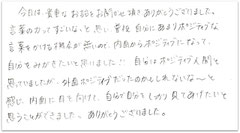 今日は、貴重なお話をお聞かせ頂きありがとうございました。
言葉の力ってすごいな、と思い、普段自分にあまりポジティブな
言葉をかける機会が無いので、内面からポジティブになって、
自分をみがきたいと思いました!! 自分はポジティブ人間と
思っていましたが、外面ポジティブだったのかもしれないな〜と
感じ、内面に目を向けて、自分が自分をしっかり見てあげたいと
思うことができました。ありがとうございました。